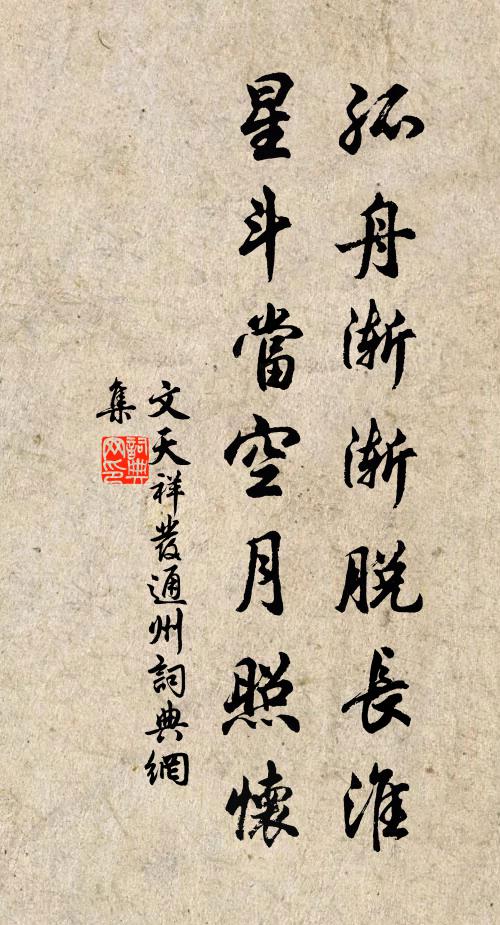 孤舟漸漸脫長淮
星斗當空月照懷
文天祥發通州詞典網
集
詞典
网印